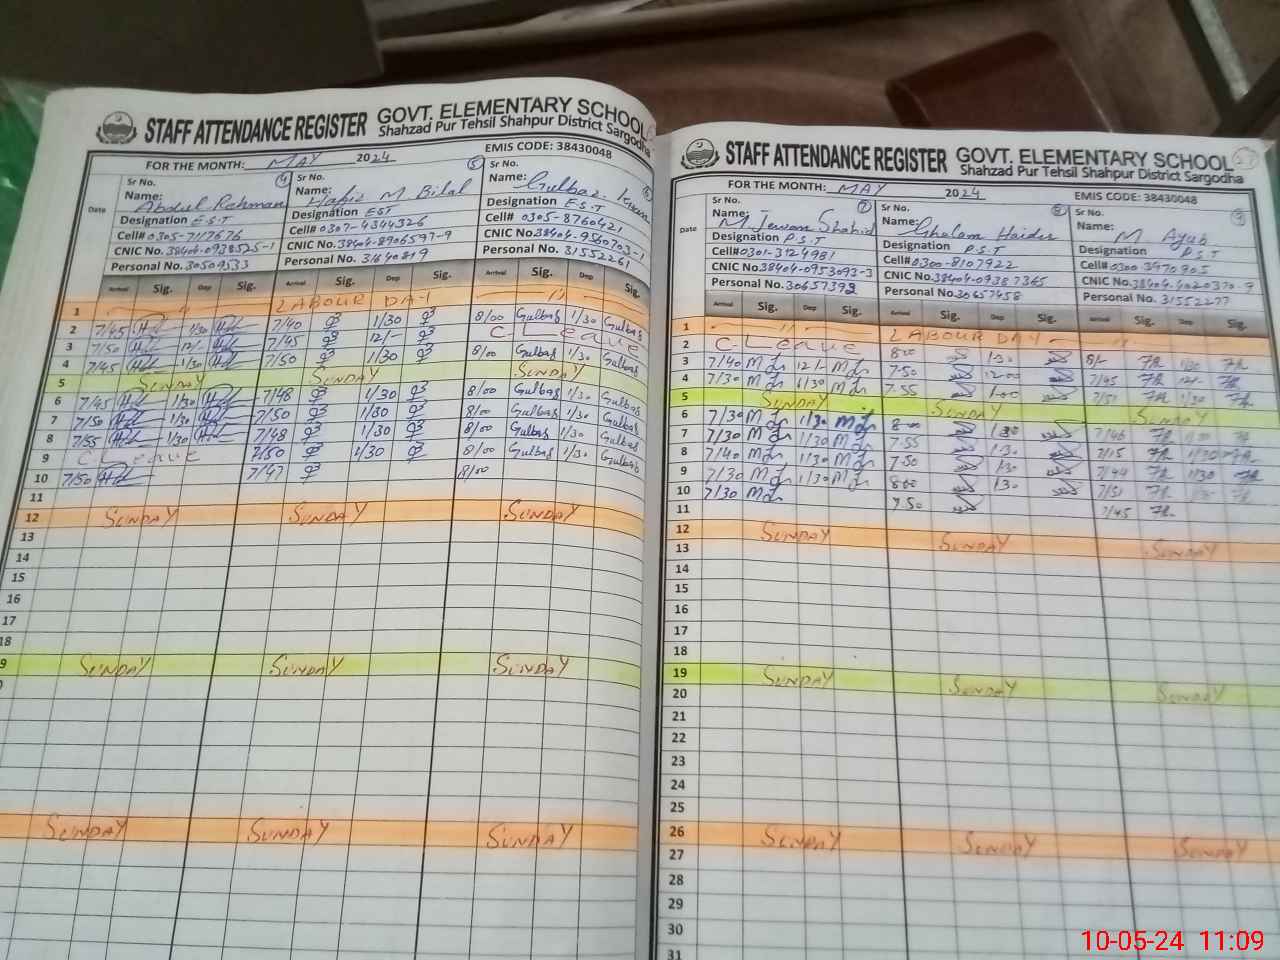 STAFF ATTENDANCE REGISTER GOVT. ELEMENTARY SCHOOL
Shahzad Pur Tehsil Shahpur District Sargodha
FOR THE MONTH: MAY 2024 EMIS CODE: 38430048
Sr No. 4 Sr No. 5 Sr No. 6
Date Name: Abdul Rehman Name: Hafiz M Bilal Name: Gulbaz Khan
Designation E.S.T Designation EST Designation E.S.T
Cell# 0305-7117676 Cell# 0307-4344326 Cell# 0305-8760421
CNIC No. 38404-0978525-1 CNIC No. 38404-8906597-9 CNIC No. 38404-9560703-1
Personal No. 30509533 Personal No. 31640819 Personal No. 31552261
Arrival Sig. Dep Sig. Arrival Sig. Dep Sig. Arrival Sig. Dep Sig.
1 LABOUR DAY
2 7/45 1/30 7/40 1/30 8/00 Gulbaz 1/30 Gulbaz
3 7/50 12/- 7/45 12/- C-Leave
4 7/45 1/30 7/50 1/30 8/00 Gulbaz 1/30 Gulbaz
5 SUNDAY SUNDAY SUNDAY
6 7/45 1/30 7/48 1/30 8/00 Gulbaz 1/30 Gulbaz
7 7/50 1/30 7/50 1/30 8/00 Gulbaz 1/30 Gulbaz
8 7/55 1/30 7/48 1/30 8/00 Gulbaz 1/30 Gulbaz
9 C-Leave 7/50 1/30 8/00 Gulbaz 1/30 Gulbaz
10 7/50 7/47 8/00
11
12 SUNDAY SUNDAY SUNDAY
13
14
15
16
17
18
9 SUNDAY SUNDAY SUNDAY
SUNDAY SUNDAY SUNDAY
STAFF ATTENDANCE REGISTER GOVT. ELEMENTARY SCHOOL 27
Shahzad Pur Tehsil Shahpur District Sargodha
FOR THE MONTH: MAY 2024 EMIS CODE: 38430048
Sr No. 7 Sr No. 8 Sr No. 9
Date Name: M Shahid Name: Ghulam Haider Name: M. Ayub
Designation P.S.T Designation P.S.T Designation P.S.T
Cell# 0301-3124981 Cell# 0300-8107922 Cell# 0300-3970905
CNIC No. 38404-0953093-3 CNIC No. 38404-09387365 CNIC No. 38404-4020370-9
Personal No. 30657392 Personal No. 30657458 Personal No. 31552277
Arrival Sig. Dep Sig. Arrival Sig. Dep Sig. Arrival Sig. Dep Sig.
1 LABOUR DAY
2 C-Leave 8-00 1-30 8/-
3 7/40 12/- 7-50 12-00 7/45 12/-
4 7/30 1/30 7-55 7/51 1/30
5 SUNDAY SUNDAY SUNDAY
6 7/30 1/30 8-00 1-30 7/46
7 7/30 1/30 7-55 1-30 7/15 1/30
8 7/40 1/30 7-50 1-30 7/44 1/30
9 7/30 1/30 8-00 1-30 7/51
10 7/30 7-50 7/45
11
12 SUNDAY SUNDAY SUNDAY
13
14
15
16
17
18
19 SUNDAY SUNDAY SUNDAY
20
21
22
23
24
25
26 SUNDAY SUNDAY SUNDAY
27
28
29
30
31
10-05-24 11:09